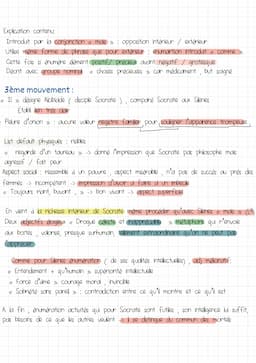 Explication contenu
Introduit par la conjonction « mais » : opposition intérieur / extérieur
Utilise même forme de phrase que pour extérieur : énumération introduit « comme »
Cette fois a énumère élément positif / précieux avant négatif / grotesque
Décrit avec groupe nominal « choses précieuses » car médicament, but soigne
3ème mouvement :
« Il » désigne Alcibiade / disciple Socrate ), comparé Socrate aux Silènes
Etait laid très clair
Pelure d'oignon » : aucune valeur registre familier pour souligner l'apparence trompeuse
List défaut physiques : ridicule
« regardé d'un taureau » -> donne l'impression que Socrate pas philosophe mais
agressif / fait peur
Aspect social : ressemble à un pauvre, aspect misérable, n'a pas de succès au près des
femmes -> incompétent -> impression d'avoir à faire à un imbécile
« Toujours riant, buvant », « bon vivant » -> aspect superficiel
En vient à la richesse intérieur de Socrate même procéder qu'avec Silènes « mais »
Deux adjectifs élogieux « Céleste et inappréciable » : métaphore qui n'envoie
aux boîte, drame, presque surhumain, élément extraordinaire qu'on ne peut pas
l'apprécier
Comme pour Silènes énumération ( de ses qualités intellectuelles), adj mélioratif
« Entendement + qu'humain » supériorité intellectuelle
« Force d'âme » courage moral, invincible
« Sobriété sans pareil » : contradiction entre ce qu'il montre et ce qu'il est
A la fin, énumération activités qui pour Socrate sont futiles, son intelligence lui suffit,
pas besoins de ce que les autres veulent -> il se distingue du commun des mortels